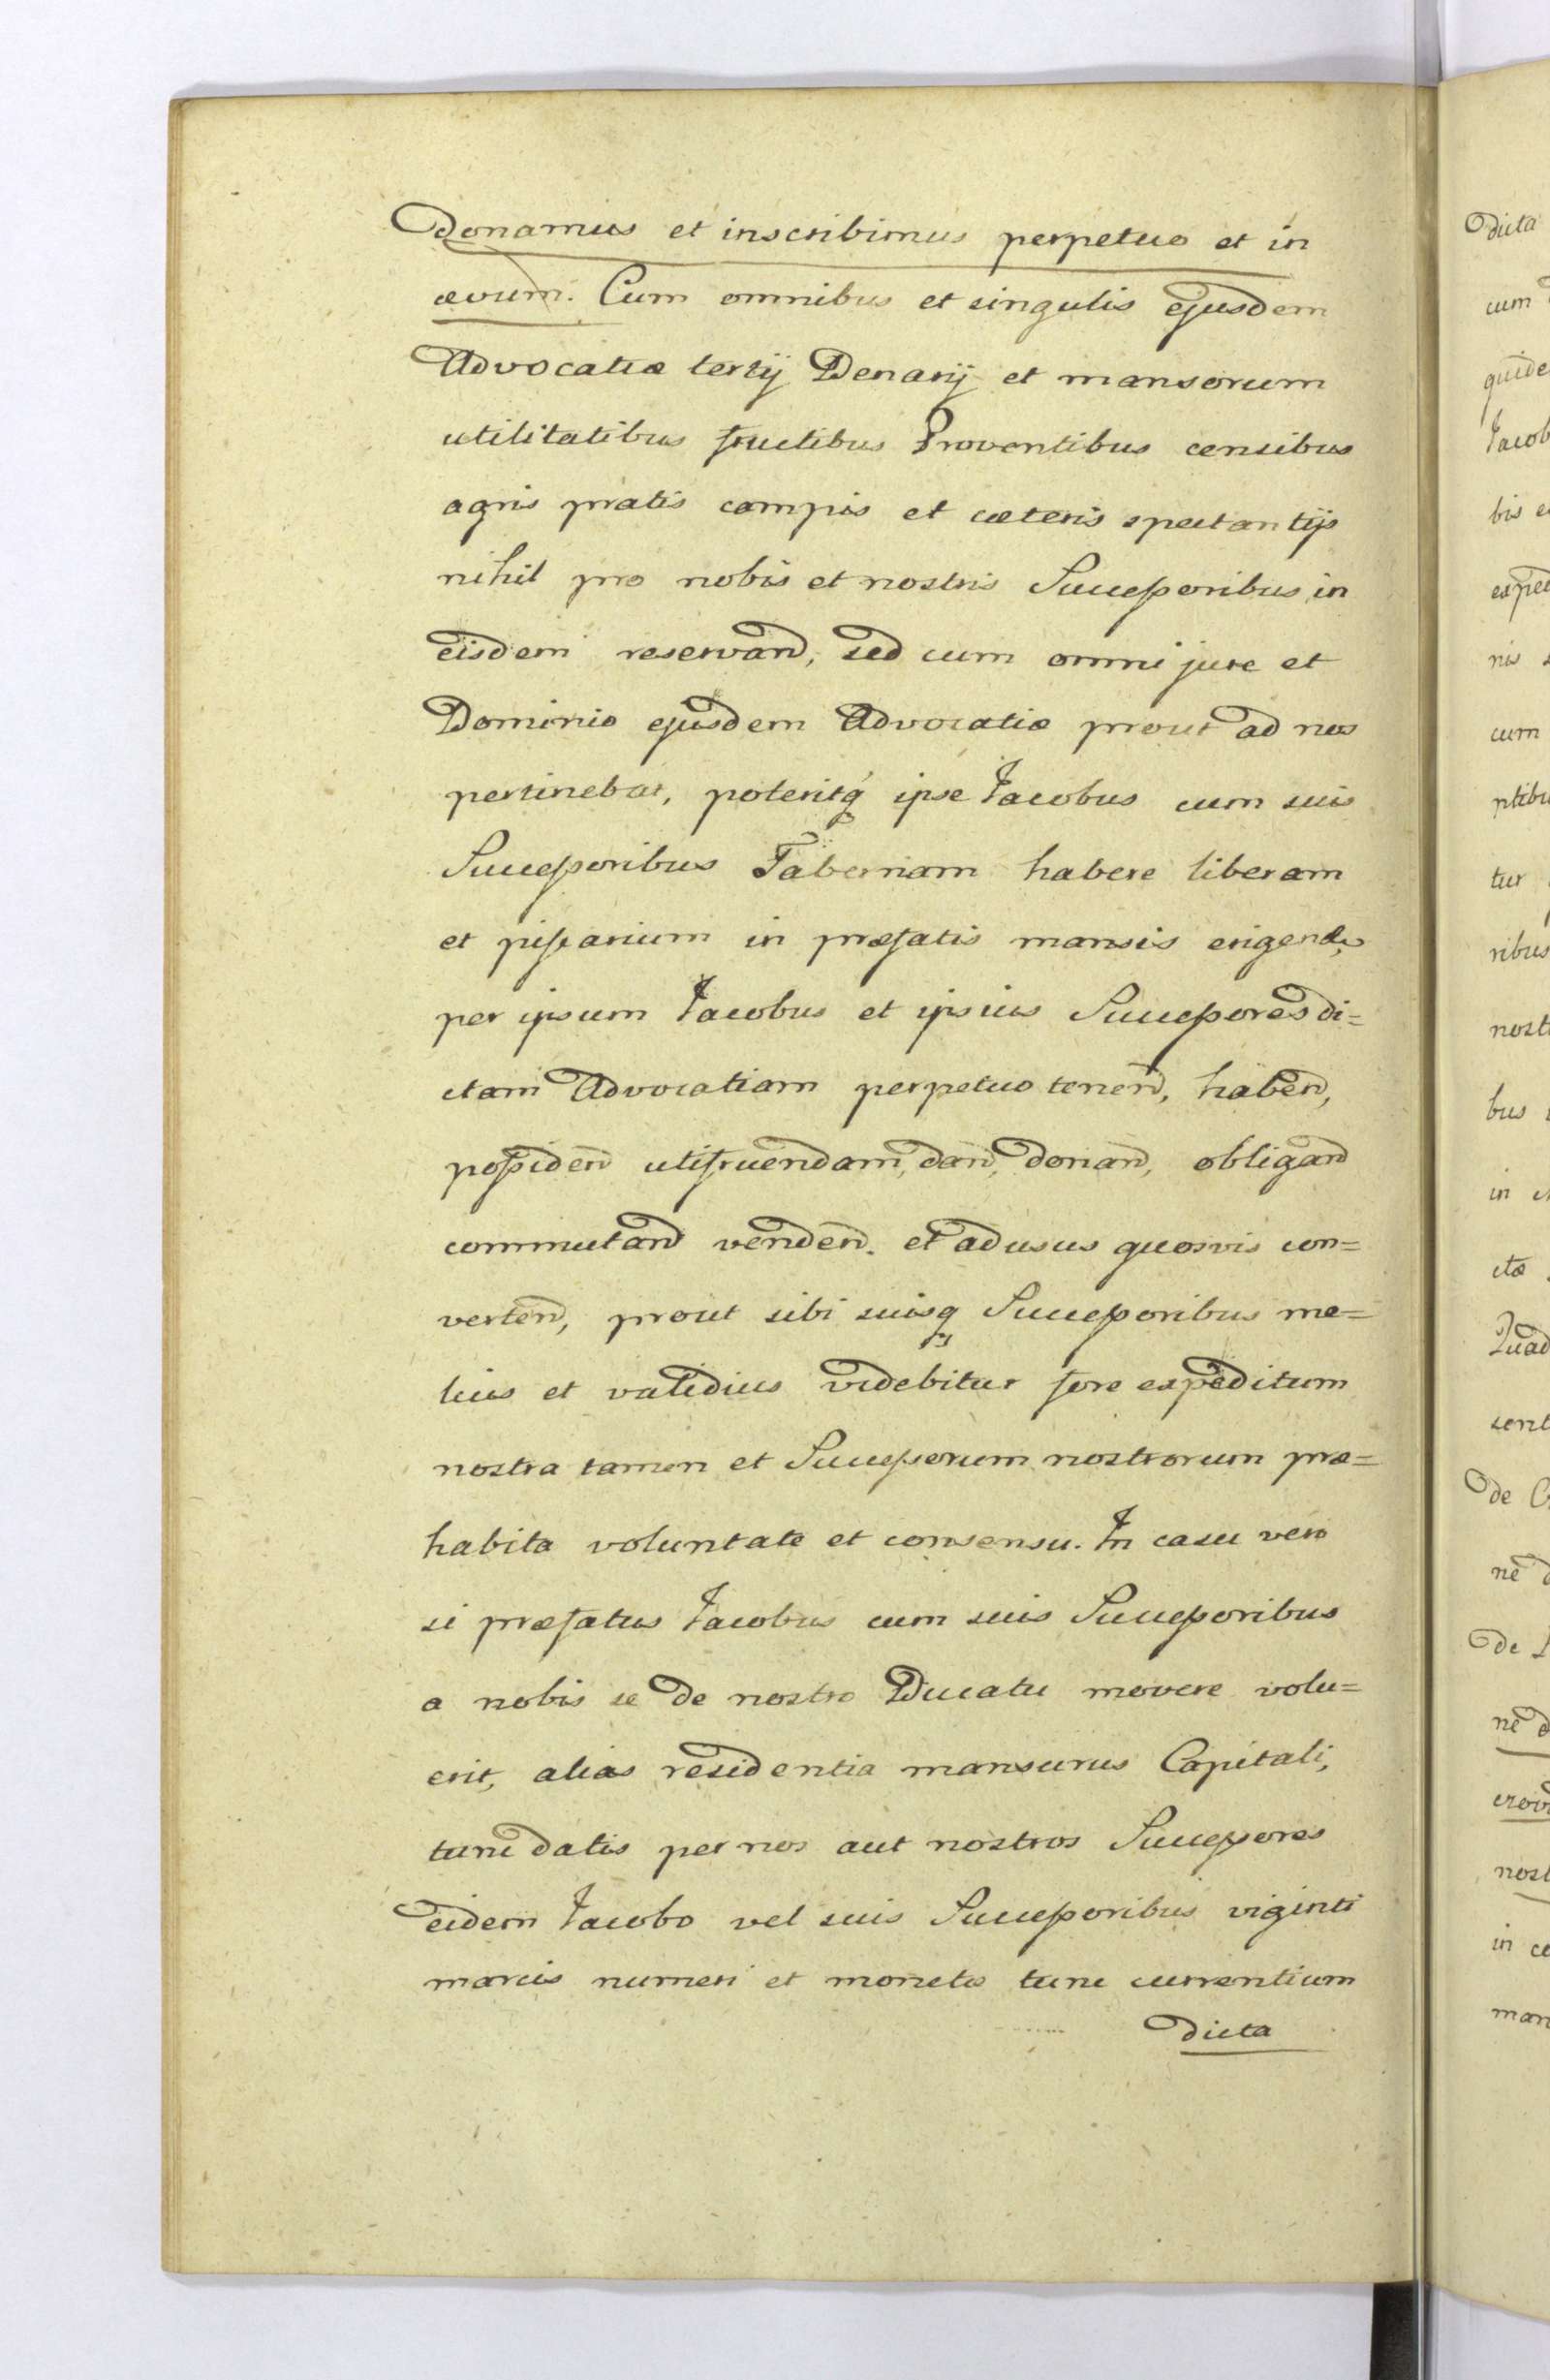 Donamus et inscribimus perpetuo et in
ævum. Cum omnibus et singulis ejusdem
Advocatiæ tertij Denarij et mansorum
utilitatibus fructibus Proventibus censibus
agris pratis campis et cæteris spectantijs
nihil pro nobis et nostris Succeßoribus in
eisdem reservand̄, sed cum omni jure et
Dominio ejusdem Advocatiæ prout ad nos
pertinebat, poteritq́ ipse Jacobus cum suis
Succeßoribus Tabernam habere liberam
et in præfatis mansis erigend,
per ipsum Jacobus et ipsius Succeßores di=
ctam Advocatiam perpetuo tenen̄d, haben̄d,
poßiden̄d utifruendam, dan̄d, donan̄d, obligan̄d
commutan̄d venden̄d. et ad usus quosvis con=
verten̄d, prout sibi suisq Succeßoribus me=
lius et validius videbitur fore expeditum
nostra tamen et Succeßorum nostrorum præ=
habita voluntate et consensu. In casu vero
si præfatus Jacobus cum suis Succeßoribus
a nobis se de nostro Ducatu movere volu=
erit, alias residentia mansurus Capitali,
tunc datis per nos aut nostros Succeßores
eidem Jacobo vel suis Succeßoribus viginti
marcis numeri et monetæ tunc currentium
dicta